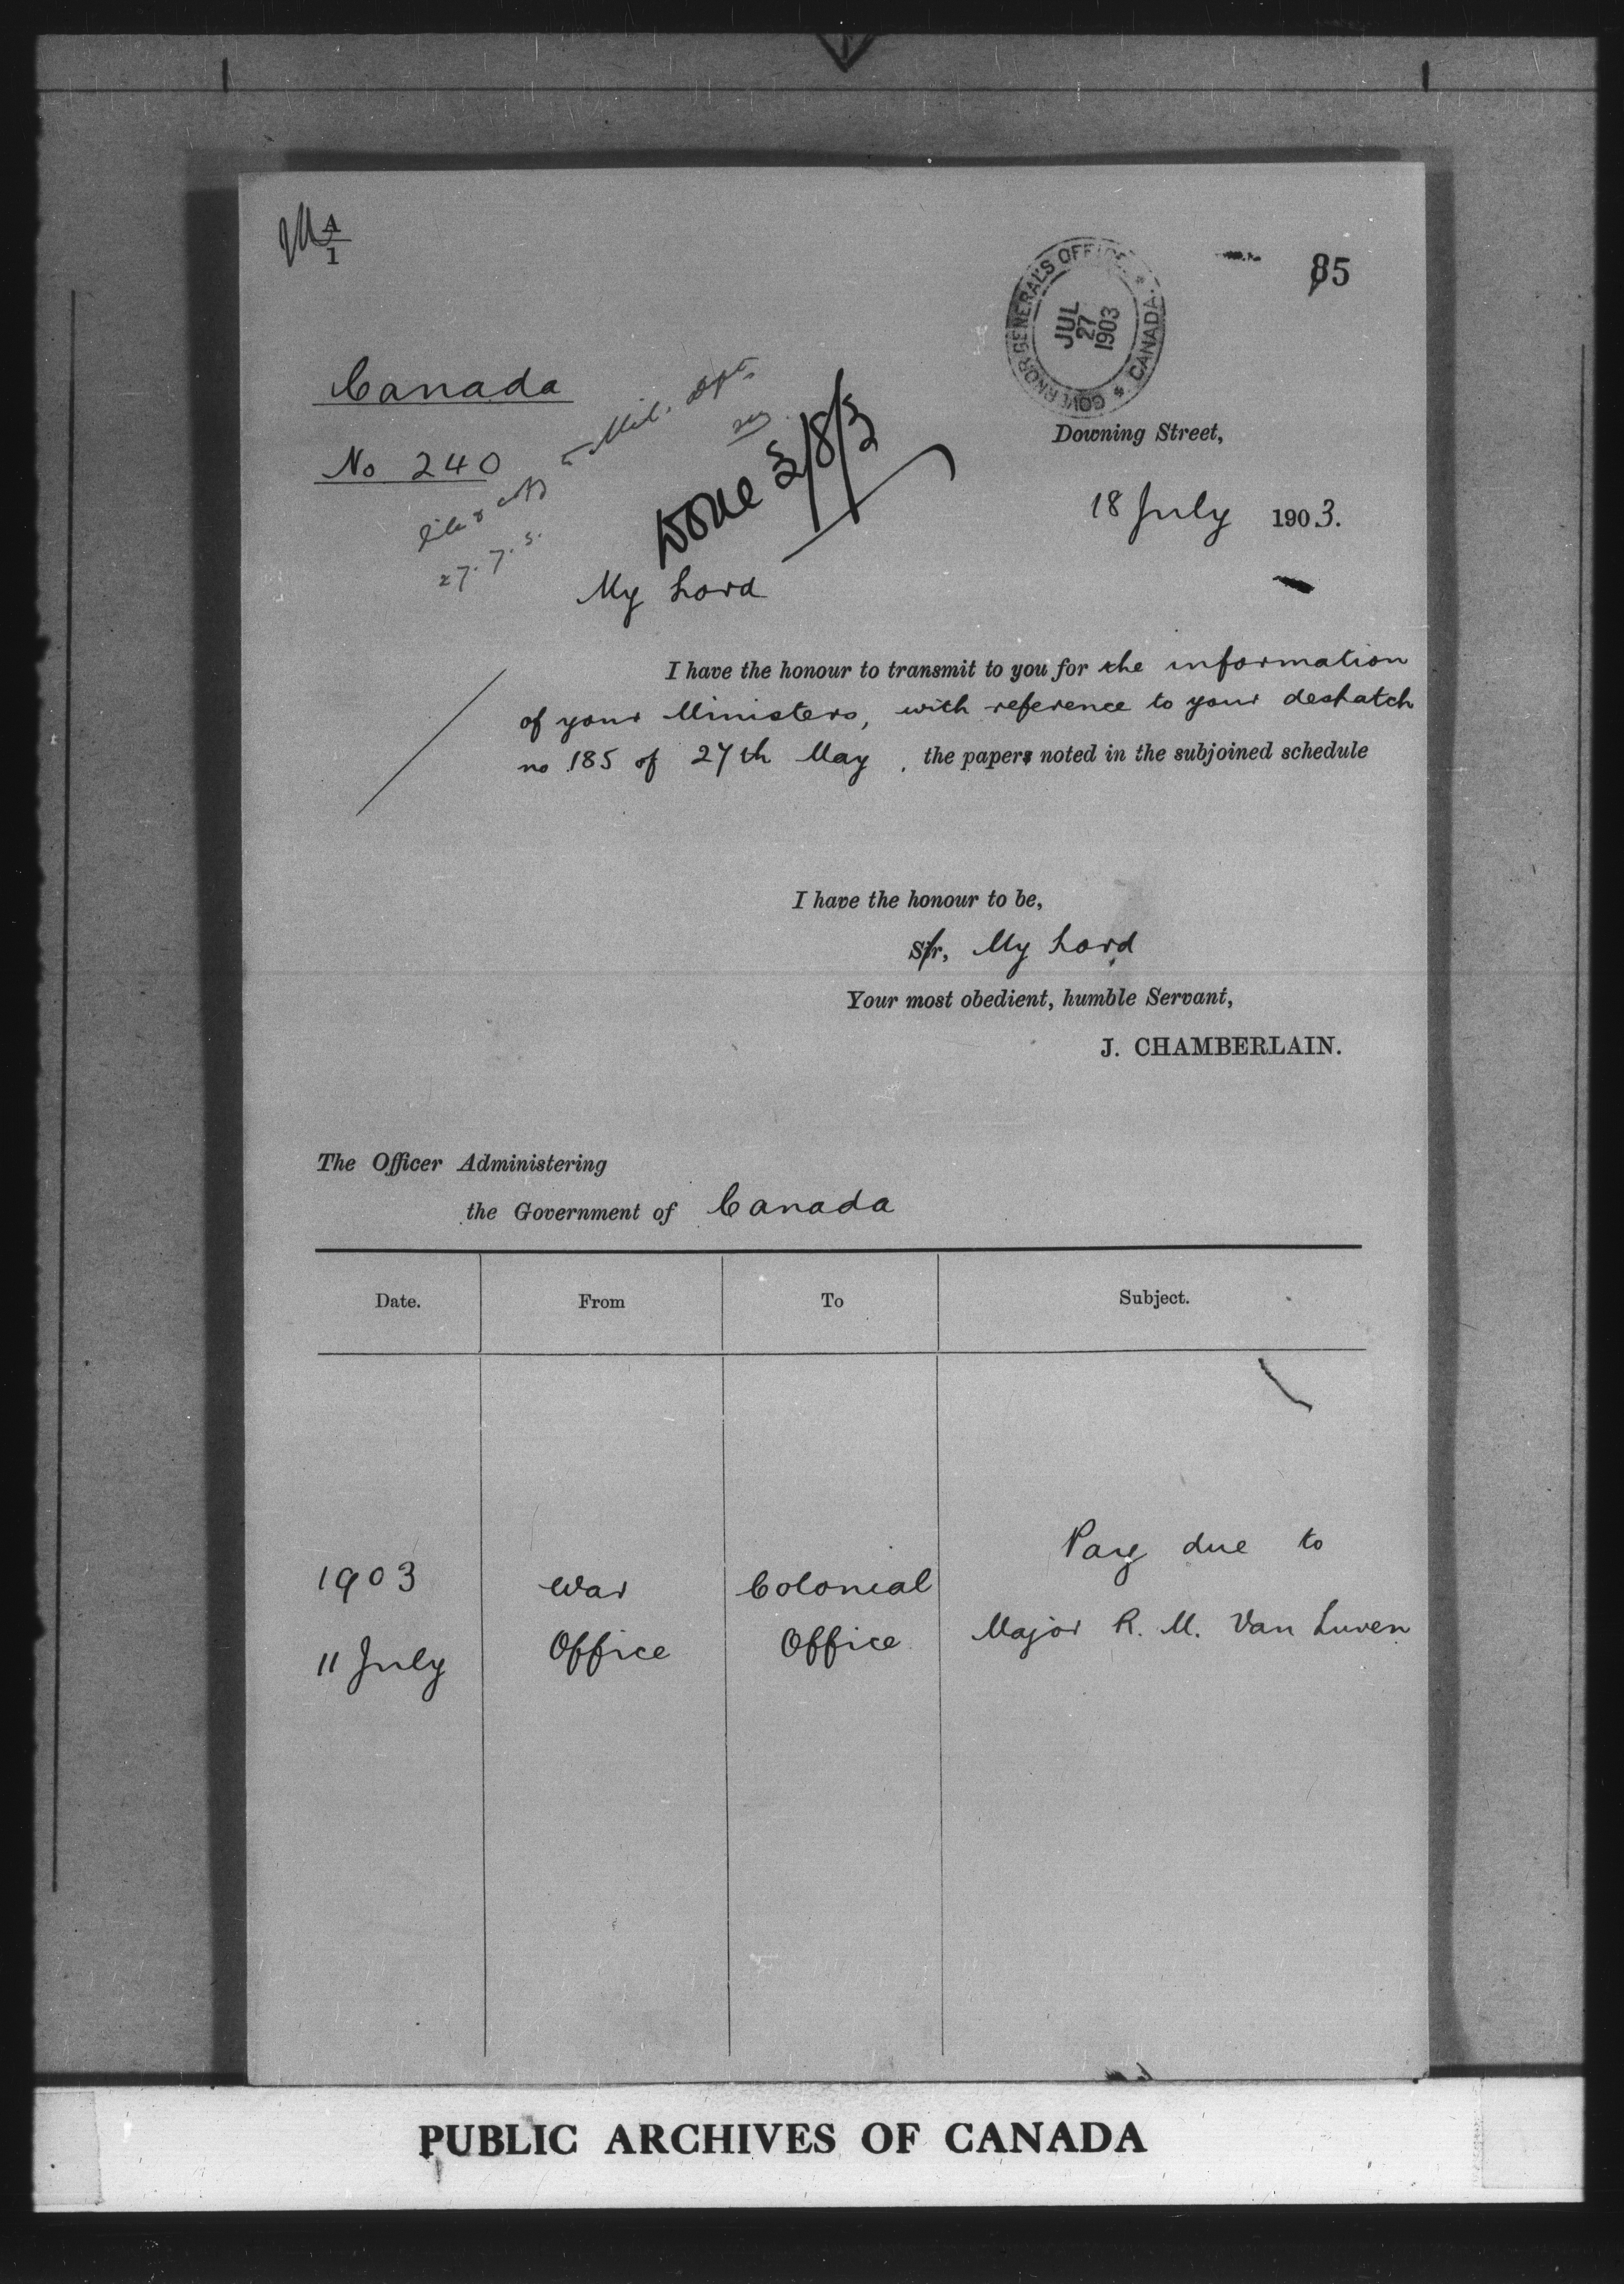 A
1
85
GOVERNOR GENERAL'S OFFICE * CANADA *
JUL
27
1903
Canada
No 240
Mil. Dept.
27.7.3.
Done 3/8/3
Downing Street,
18 July 1903.
My Lord
I have the honour to transmit to you for the information
of your Ministers, with reference to your despatch
no 185 of 27th May, the papers noted in the subjoined schedule
I have the honour to be,
Sir, My Lord
Your most obedient, humble Servant,
J. CHAMBERLAIN.
The Officer Administering
the Government of Canada
Date. From To Subject.
Pay due to
1903 War Colonial
11 July Office Office Major R. M. Van Luven
PUBLIC ARCHIVES OF CANADA